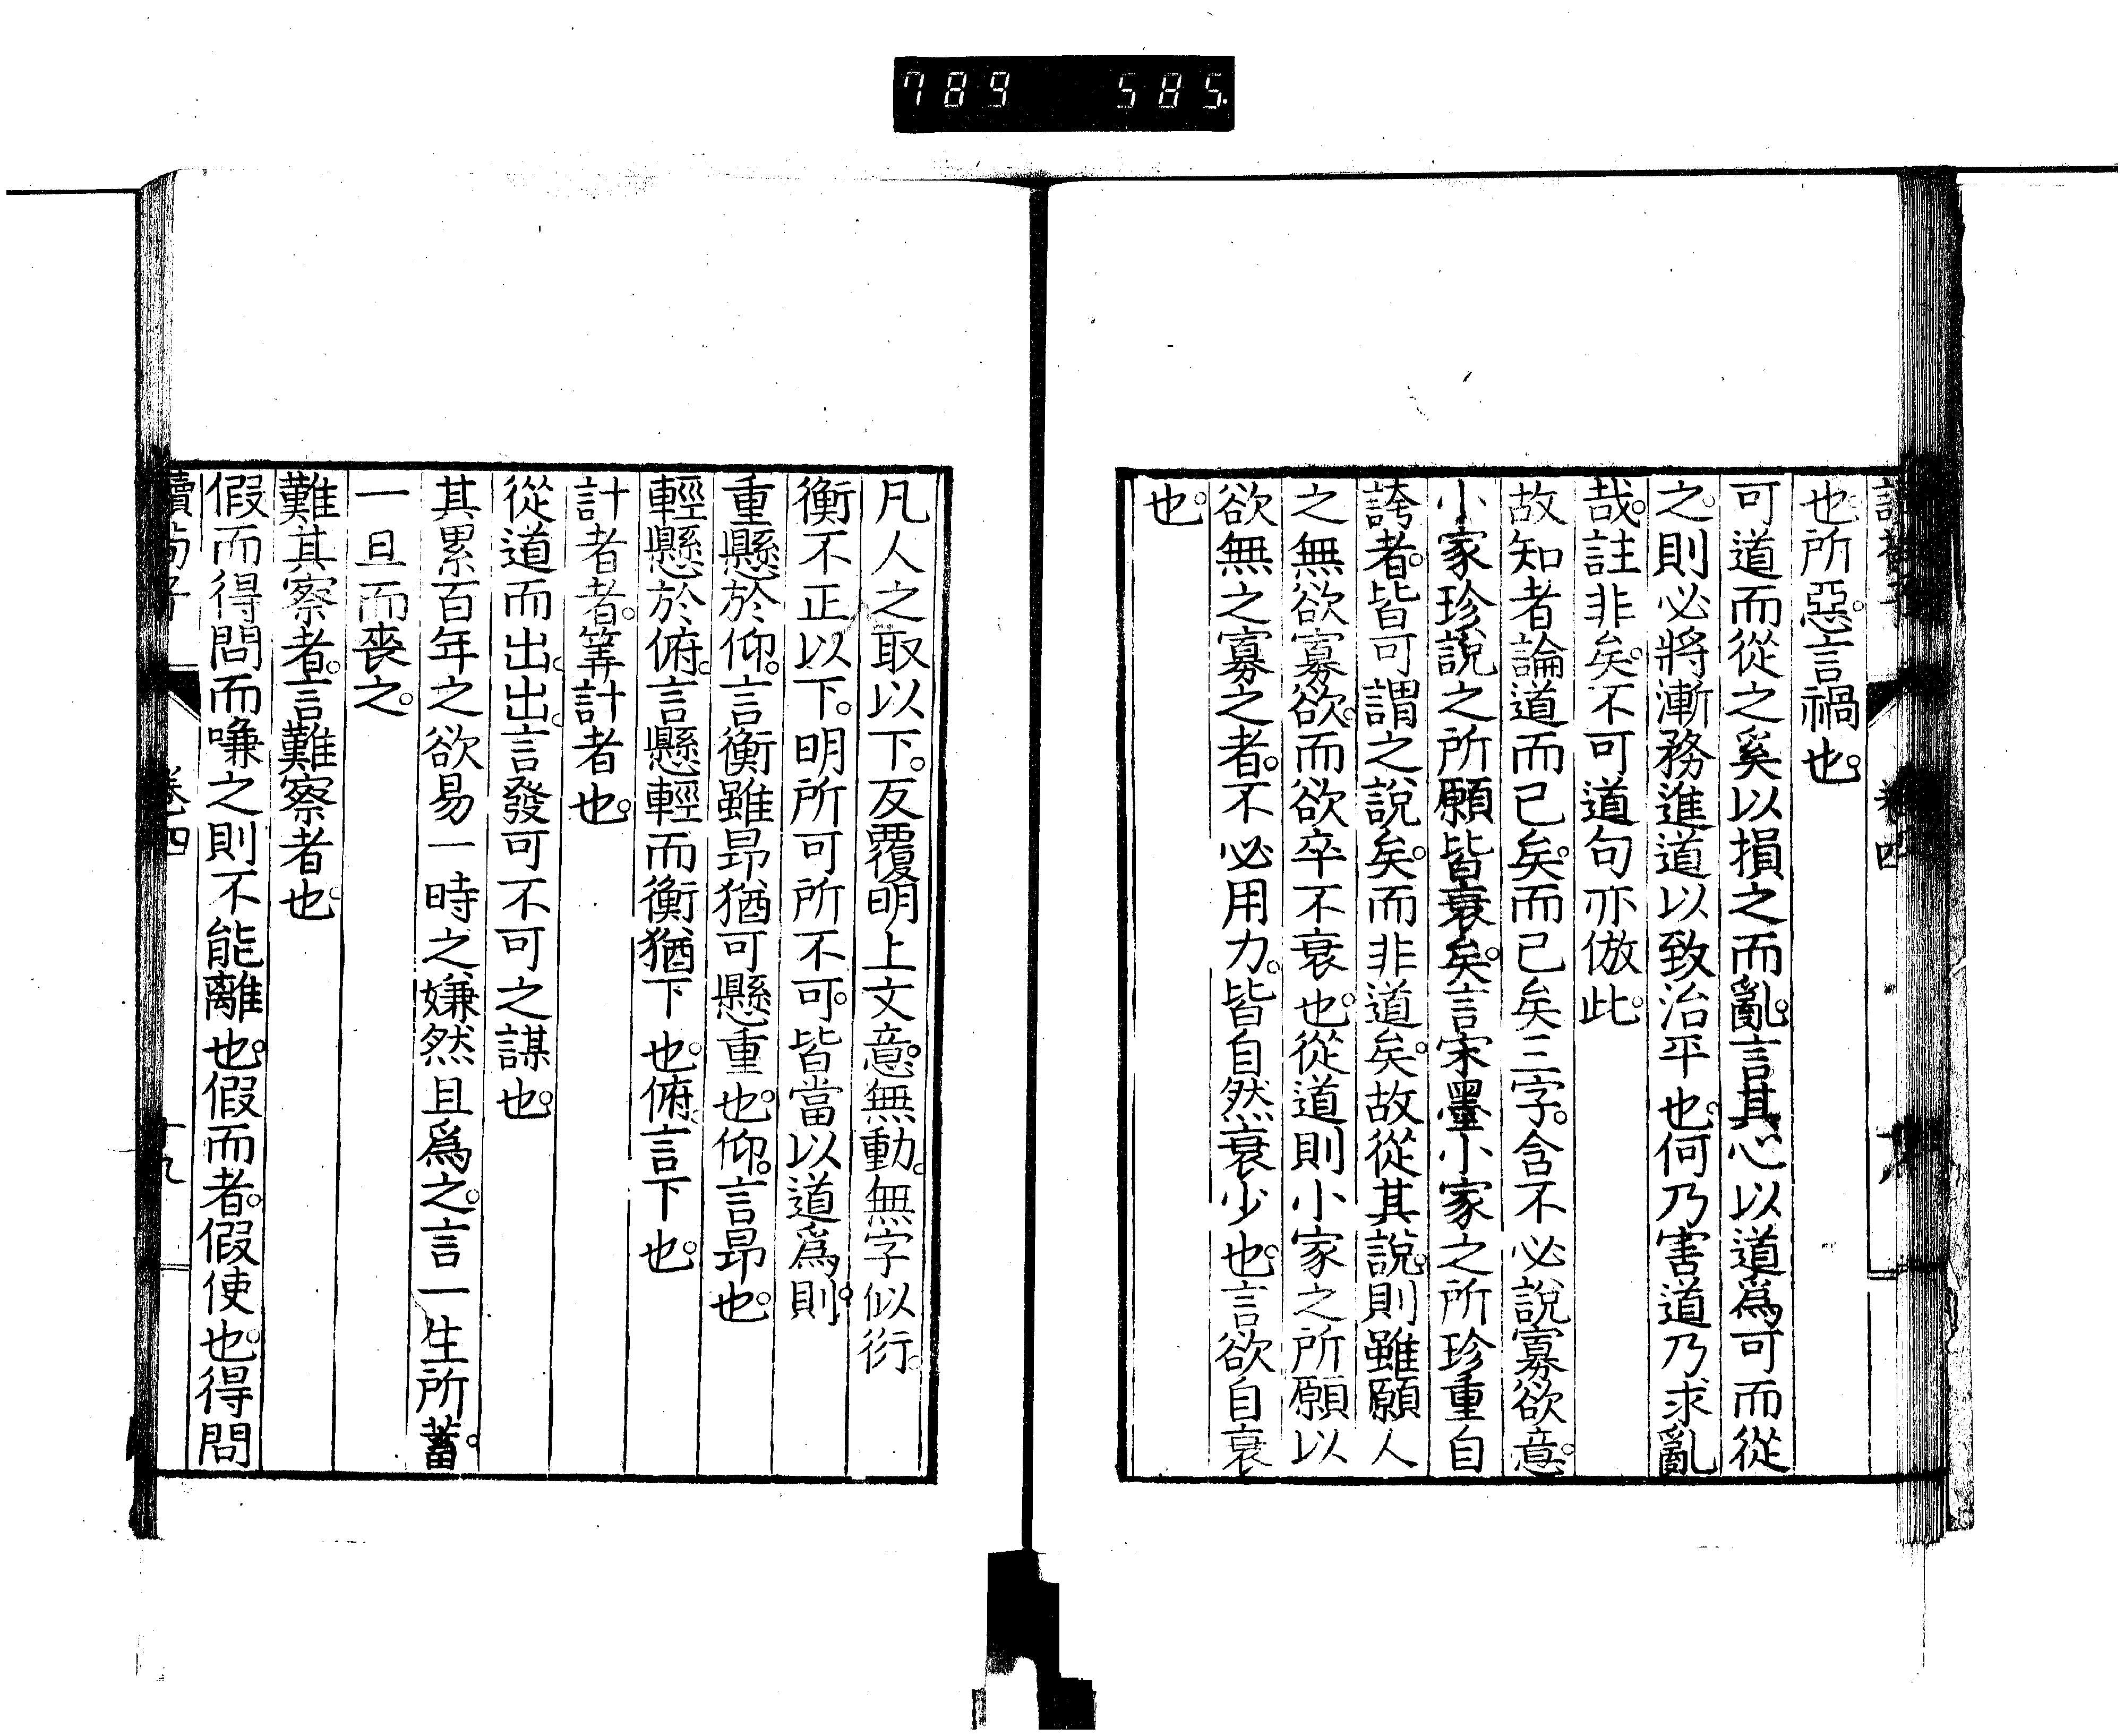 789 585
也。所惡。言禍也。
可道而從之奚以損之而亂。言其心以道爲可而從
之。則必將漸務進道以致治平也。何乃害道乃求亂
哉。註非矣。不可道句亦倣此。
故知者論道而已矣。而已矣三字。含不必說寡欲意。
小家珍說之所願皆衰矣。言宋墨小家之所珍重自
誇者。皆可謂之說矣。而非道矣。故從其說。則雖願人
之無欲寡欲。而欲卒不衰也。從道則小家之所願以
欲無之寡之者。不必用力。皆自然衰少也。言欲自衰
也。
凡人之取以下。反覆明上文意。無動。無字似衍。
衡不正以下。明所可所不可。皆當以道爲則。
重懸於仰。言衡雖昻猶可懸重也。仰。言昻也。
輕懸於俯。言懸輕而衡猶下也。俯。言下也。
計者者。筭計者也。
從道而出。出。言發可不可之謀也。
其累百年之欲易一時之嫌然且爲之。言一生所蓄。
一旦而喪之。
難其察者。言難察者也。
假而得問而嗛之則不能離也。假而者。假使也。得問
讀荀子 卷四 十九